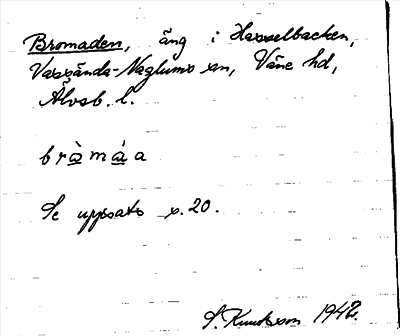 Bromaden, äng i Hasselbacken,
Vassända-Naglums sn, Väne hd,
Älvsb. l.
bràmáa
Se uppsats s. 20.
S. Knutsson 1942.